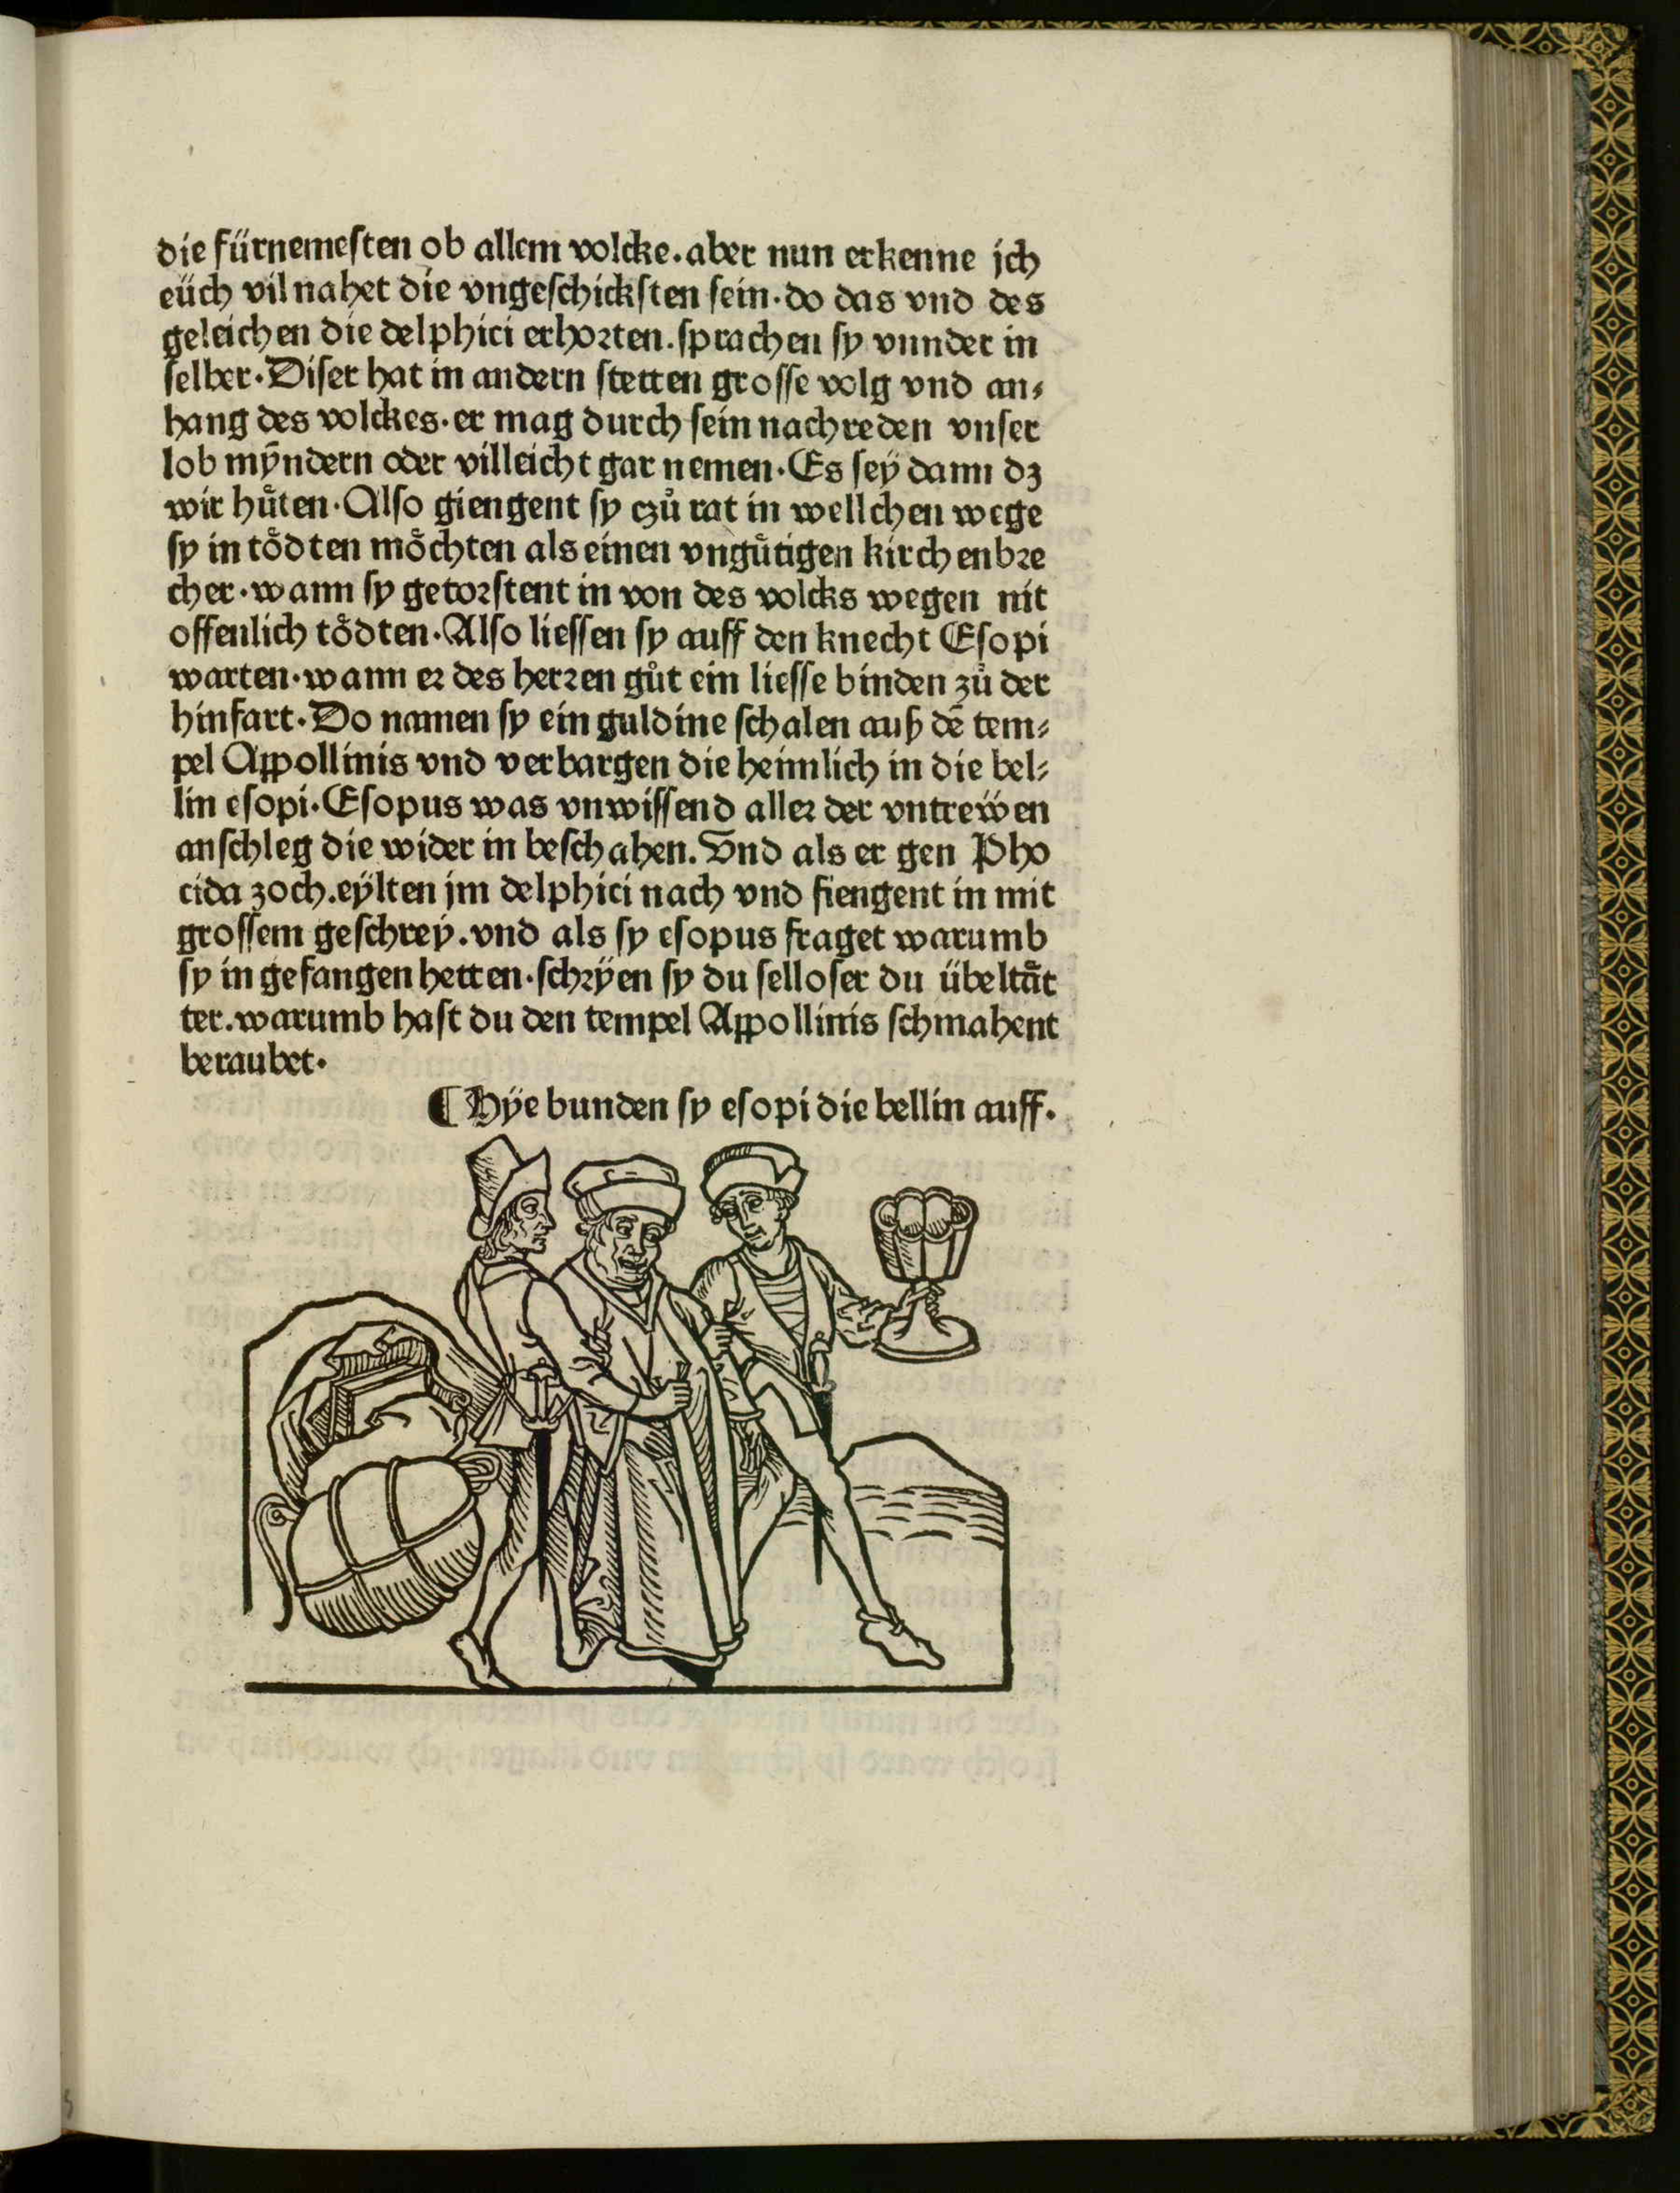 die fürnemeſten ob allem volcke. aber nun erkenne jch
eüch vil nahet die vngeſchickſten ſein. do das vnd des
geleichen die delphici erhoꝛten. ſprachen ſy vnnder in
ſelber. Diſer hat in andern ſtetten groſſe volg vnd an⸗
hang des volckes. er mag durch ſein nachreden vnſer
lob mÿndern oder villeicht gar nemen. Es ſeÿ dann dꝫ
wir huͤten. Alſo giengent ſy czuͦ rat in wellchen wege
ſy in toͤdten moͤchten als einen vnguͤtigen kirchenbꝛe
cher. wann ſy getoꝛſtent in von des volcks wegen nit
offenlich toͤdten. Alſo lieſſen ſy auff den knecht Eſopi
warten. wann eꝛ des herꝛen guͦt ein lieſſe binden zuͦ der
hinfart. Do namen ſy ein guldine ſchalen auß dē tem⸗
pel Appollinis vnd verbargen die heimlich in die bel⸗
lin eſopi. Eſopus was vnwiſſend alleꝛ der vntreẅen
anſchleg die wider in beſchahen. Vnd als er gen Pho
cida zoch. eÿlten jm delphici nach vnd fiengent in mit
groſſem geſchreÿ. vnd als ſy eſopus fraget warumb
ſy in gefangen hetten. ſchꝛÿen ſy du ſelloſer du übeltaͤt
ter. warumb haſt du den tempel Appollinis ſchmahent
beraubet.
¶ Hÿe bunden ſy eſopi die bellin auff.